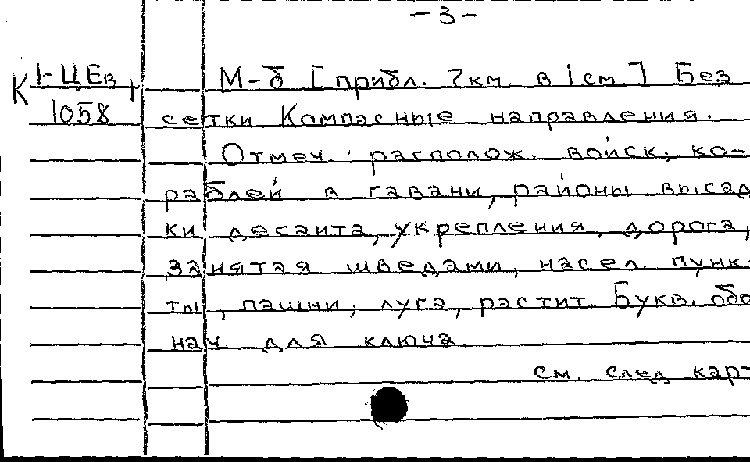 -3-
К 1-ЦЕв М-б [прибл. 7км в 1см] Без
1058 сетки Компасные направления.
Отмеч. располож. войск, ко-
раблей в гавани, районы высад
ки десанта, укрепления, дорога,
занятая шведами, насел. пунк-
ты, пашни, луга, растит. Букв. обо
нач для ключа.
см. след кар-